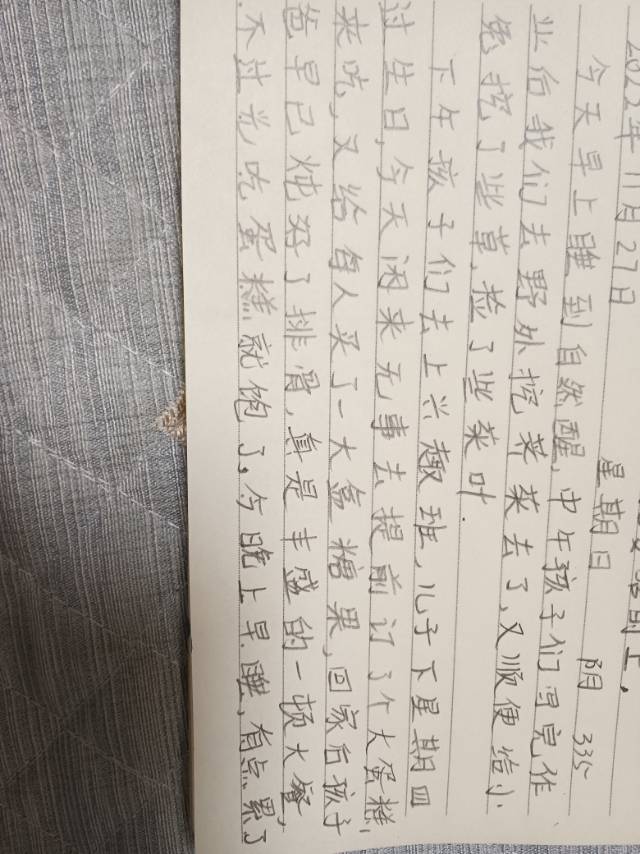 2022年11月27日 星期日 阴 335
今天早上睡到自然醒,中午孩子们写完作
业后我们去野外挖荠菜去了,又顺便给小
兔挖了些草,捡了些菜叶.
下午孩子们去上兴趣班,儿子下星期四
过生日,今天闲来无事去提前订了个大蛋糕
来吃,又给每人买了一大盒糖果,回家后孩子
爸早已炖好了排骨,真是丰盛的一顿大餐,
不过光吃蛋糕就饱了。今晚上早睡,有点累了